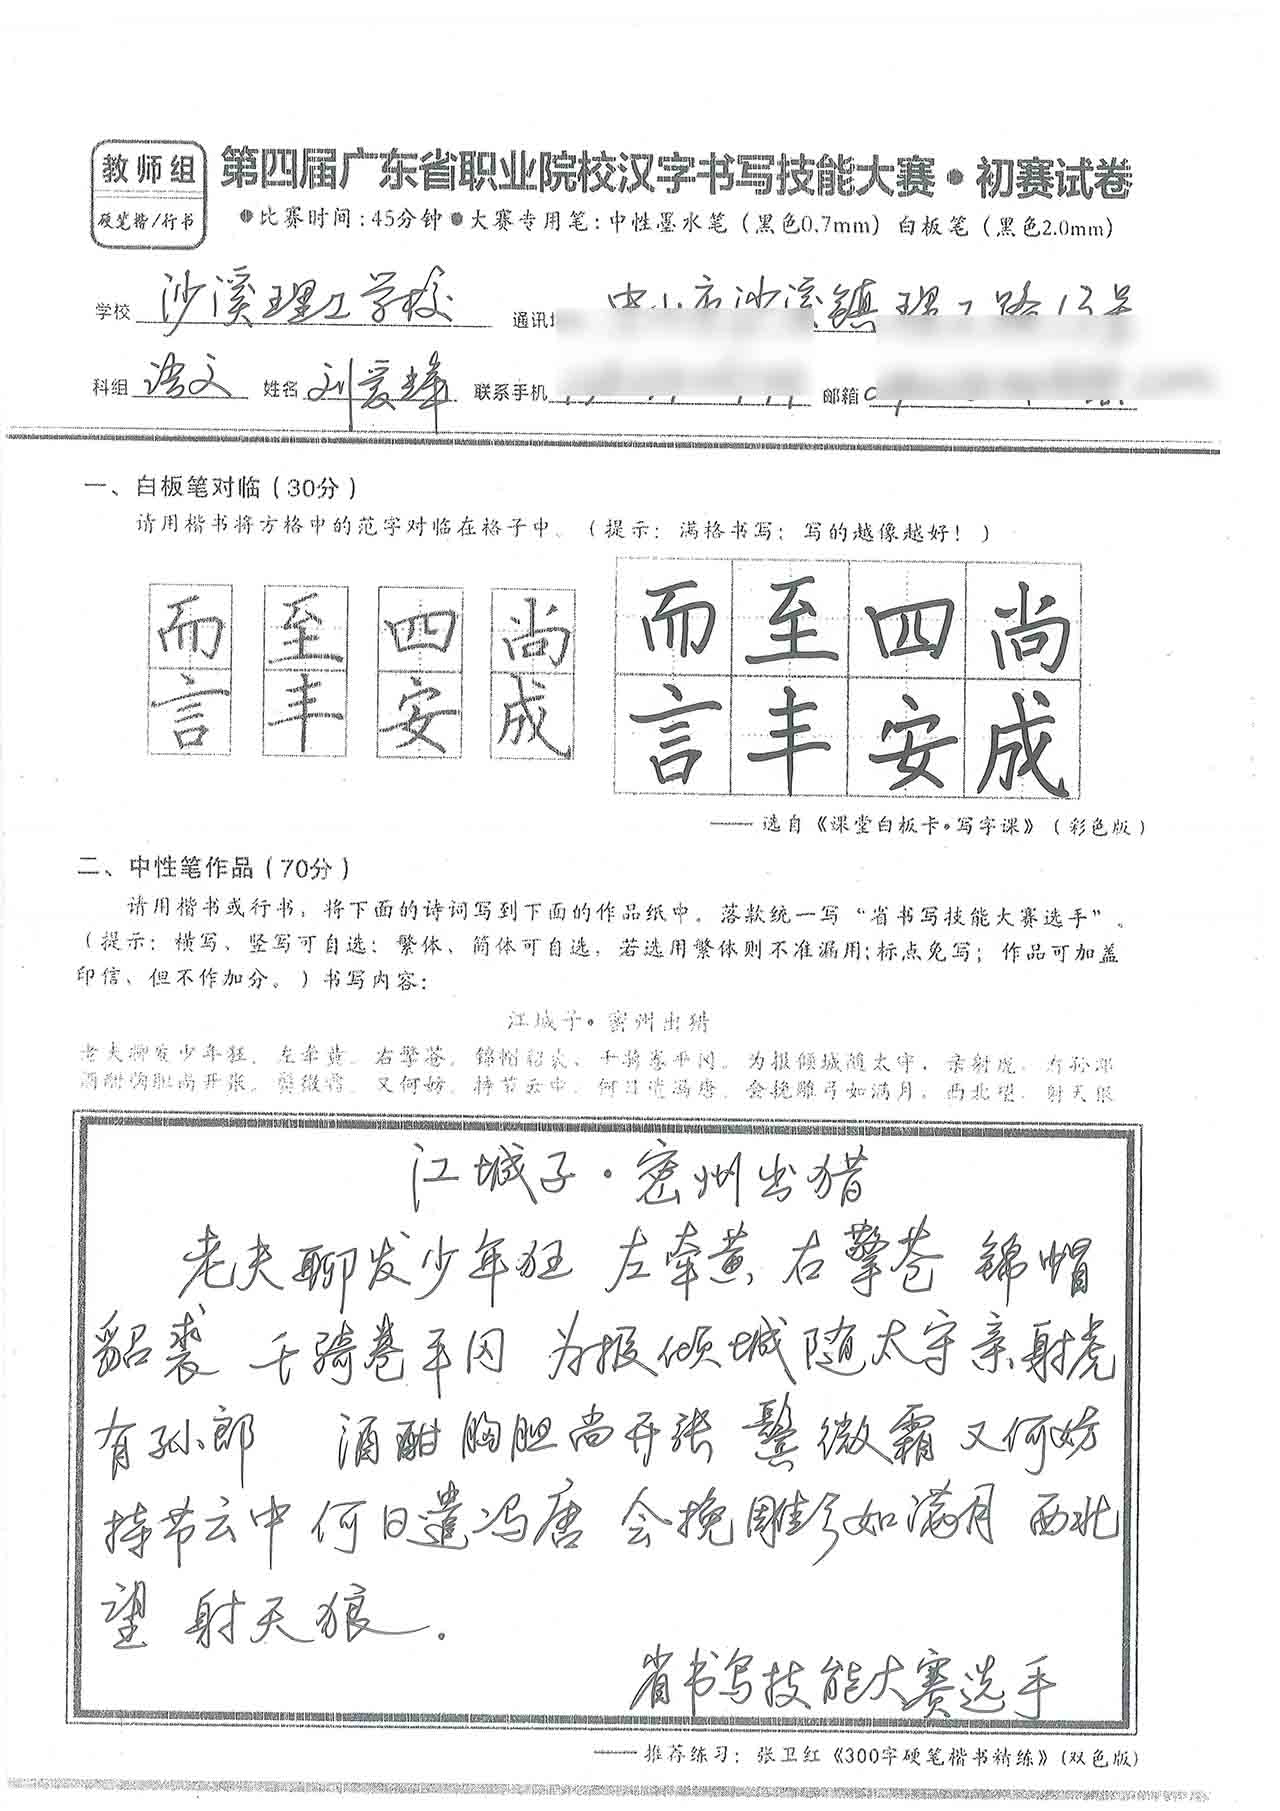 教师组
硬笔楷/行书
第四届广东省职业院校汉字书写技能大赛·初赛试卷
●比赛时间:45分钟●大赛专用笔:中性墨水笔(黑色0.7mm)白板笔(黑色2.0mm)
学校 沙溪理工学校 通讯 中山市沙溪镇理工路13号
科组 语文 姓名 刘爱峰 联系手机 邮箱
一、白板笔对临(30分)
请用楷书将方格中的范字对临在格子中。(提示:满格书写;写的越像越好!)
而 至 四 尚 而 至 四 尚
言 丰 安 成 言 丰 安 成
——选自《课堂白板卡·写字课》(彩色版)
二、中性笔作品(70分)
请用楷书或行书,将下面的诗词写到下面的作品纸中。落款统一写“省书写技能大赛选手”。
(提示:横写、竖写可自选;繁体、简体可自选,若选用繁体则不准漏用;标点免写;作品可加盖
印信、但不作加分。)书写内容:
江城子·密州出猎
老夫聊发少年狂,左牵黄,右擎苍,锦帽貂裘,千骑卷平冈。为报倾城随太守,亲射虎,看孙郎
酒酣胸胆尚开张,鬓微霜,又何妨,持节云中,何日遣冯唐,会挽雕弓如满月,西北望,射天狼
江城子·密州出猎
老夫聊发少年狂 左牵黄 右擎苍 锦帽
貂裘 千骑卷平冈 为报倾城随太守亲射虎
有孙郎 酒酣胸胆尚开张 鬓微霜 又何妨
持节云中 何日遣冯唐 会挽雕弓如满月 西北
望 射天狼.
省书写技能大赛选手
——推荐练习:张卫红《300字硬笔楷书精练》(双色版)